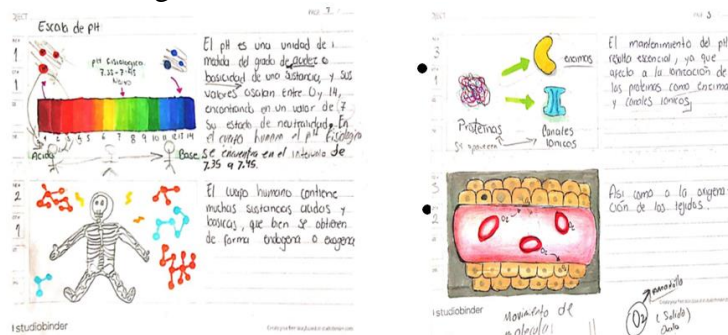 Escala de pH
1
1
pH fisiologico
7.35-7.45
El pH es una unidad de
medida del grado de acidez o
basicidad de una sustancia, y sus
valores oscilan entre 0 y 14,
encontrando en un valor de 7
su estado de neutralidad. En
el cuerpo humano el pH fisiologico
se encuentra en el intervalo de
7.35 a 7.45.
Acido
Base
2
1
El cuerpo humano contiene
muchas sustancias acidas y
basicas, que bien se obtienen
de forma endogena o exogena
studiobinder
3
1
enzimas
Proteinas
Canales
Ionicos
El mantenimiento del pH
resulta esencial, ya que
afecta a la ionización de
las proteinas como enzimas
y canales ionicos
3
2
O2
O2
O2
Asi como a la oxigena
ción de los tejidos.
studiobinder
Movimiento de
moleculas
amarillo
O2